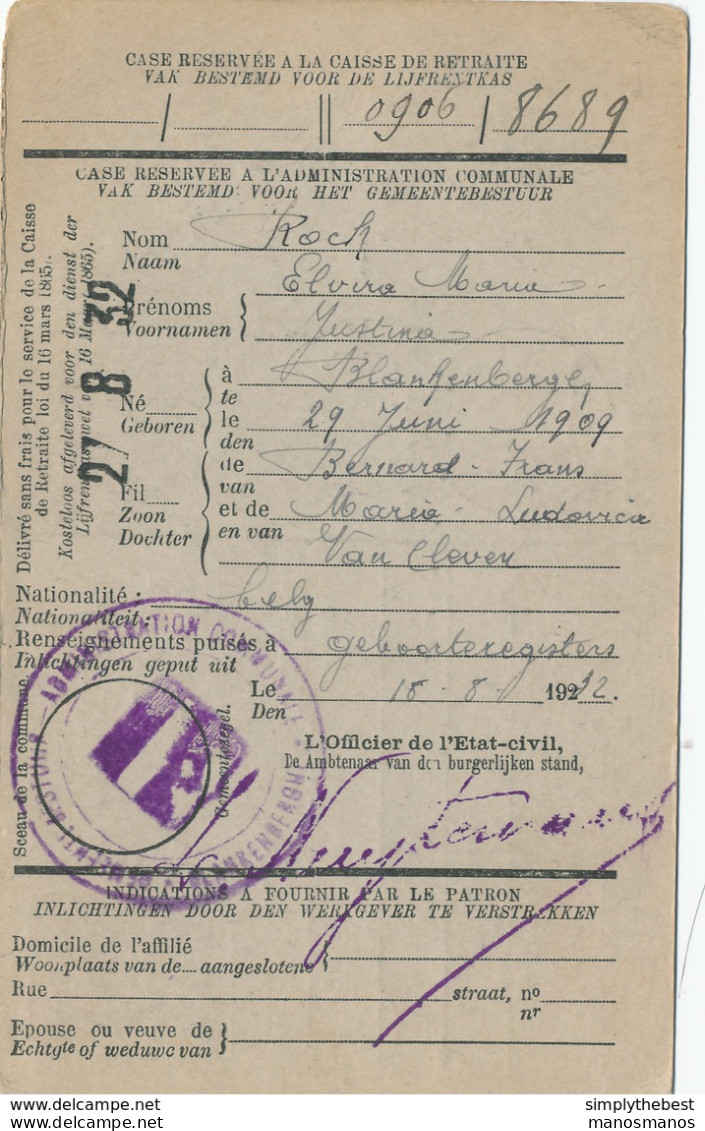 CASE RESERVÉE A LA CAISSE DE RETRAITE
VAK BESTEMD VOOR DE LIJFRENTKAS
/ || 0906 / 8689
CASE RESERVEE A L'ADMINISTRATION COMMUNALE
VAK BESTEMD VOOR HET GEMEENTEBESTUUR
Délivré sans frais pour le service de la Caisse
de Retraite loi du 16 mars 1865.
Kosteloos afgeleverd voor den dienst der
Lijfrentkas wet v 16 Maart 1865).
27 8 32
Nom Kock
Naam
Prénoms Elvira Maria
Voornamen Justina
Né à Blankenberge,
Geboren te
le 29 Juni 1909
den
Fil de Bernard-Frans
Zoon van
Dochter et de Maria-Ludovica
en van Van Cleven
Nationalité : belg
Nationaliteit :
Renseignements puisés à geboorteregisters
Inlichtingen geput uit
Le 18-8- 1932.
Den
Sceau de la commune
Gemeentezegel.
ADMINISTRATION COMMUNALE
BLANKENBERGHE
L'Officier de l'Etat-civil,
De Ambtenaar van den burgerlijken stand,
INDICATIONS A FOURNIR PAR LE PATRON
INLICHTINGEN DOOR DEN WERKGEVER TE VERSTREKKEN
Domicile de l'affilié
Woonplaats van de.... aangeslotene
Rue straat, no
nr
Epouse ou veuve de
Echtgte of weduwe van
simplythebest
manosmanos